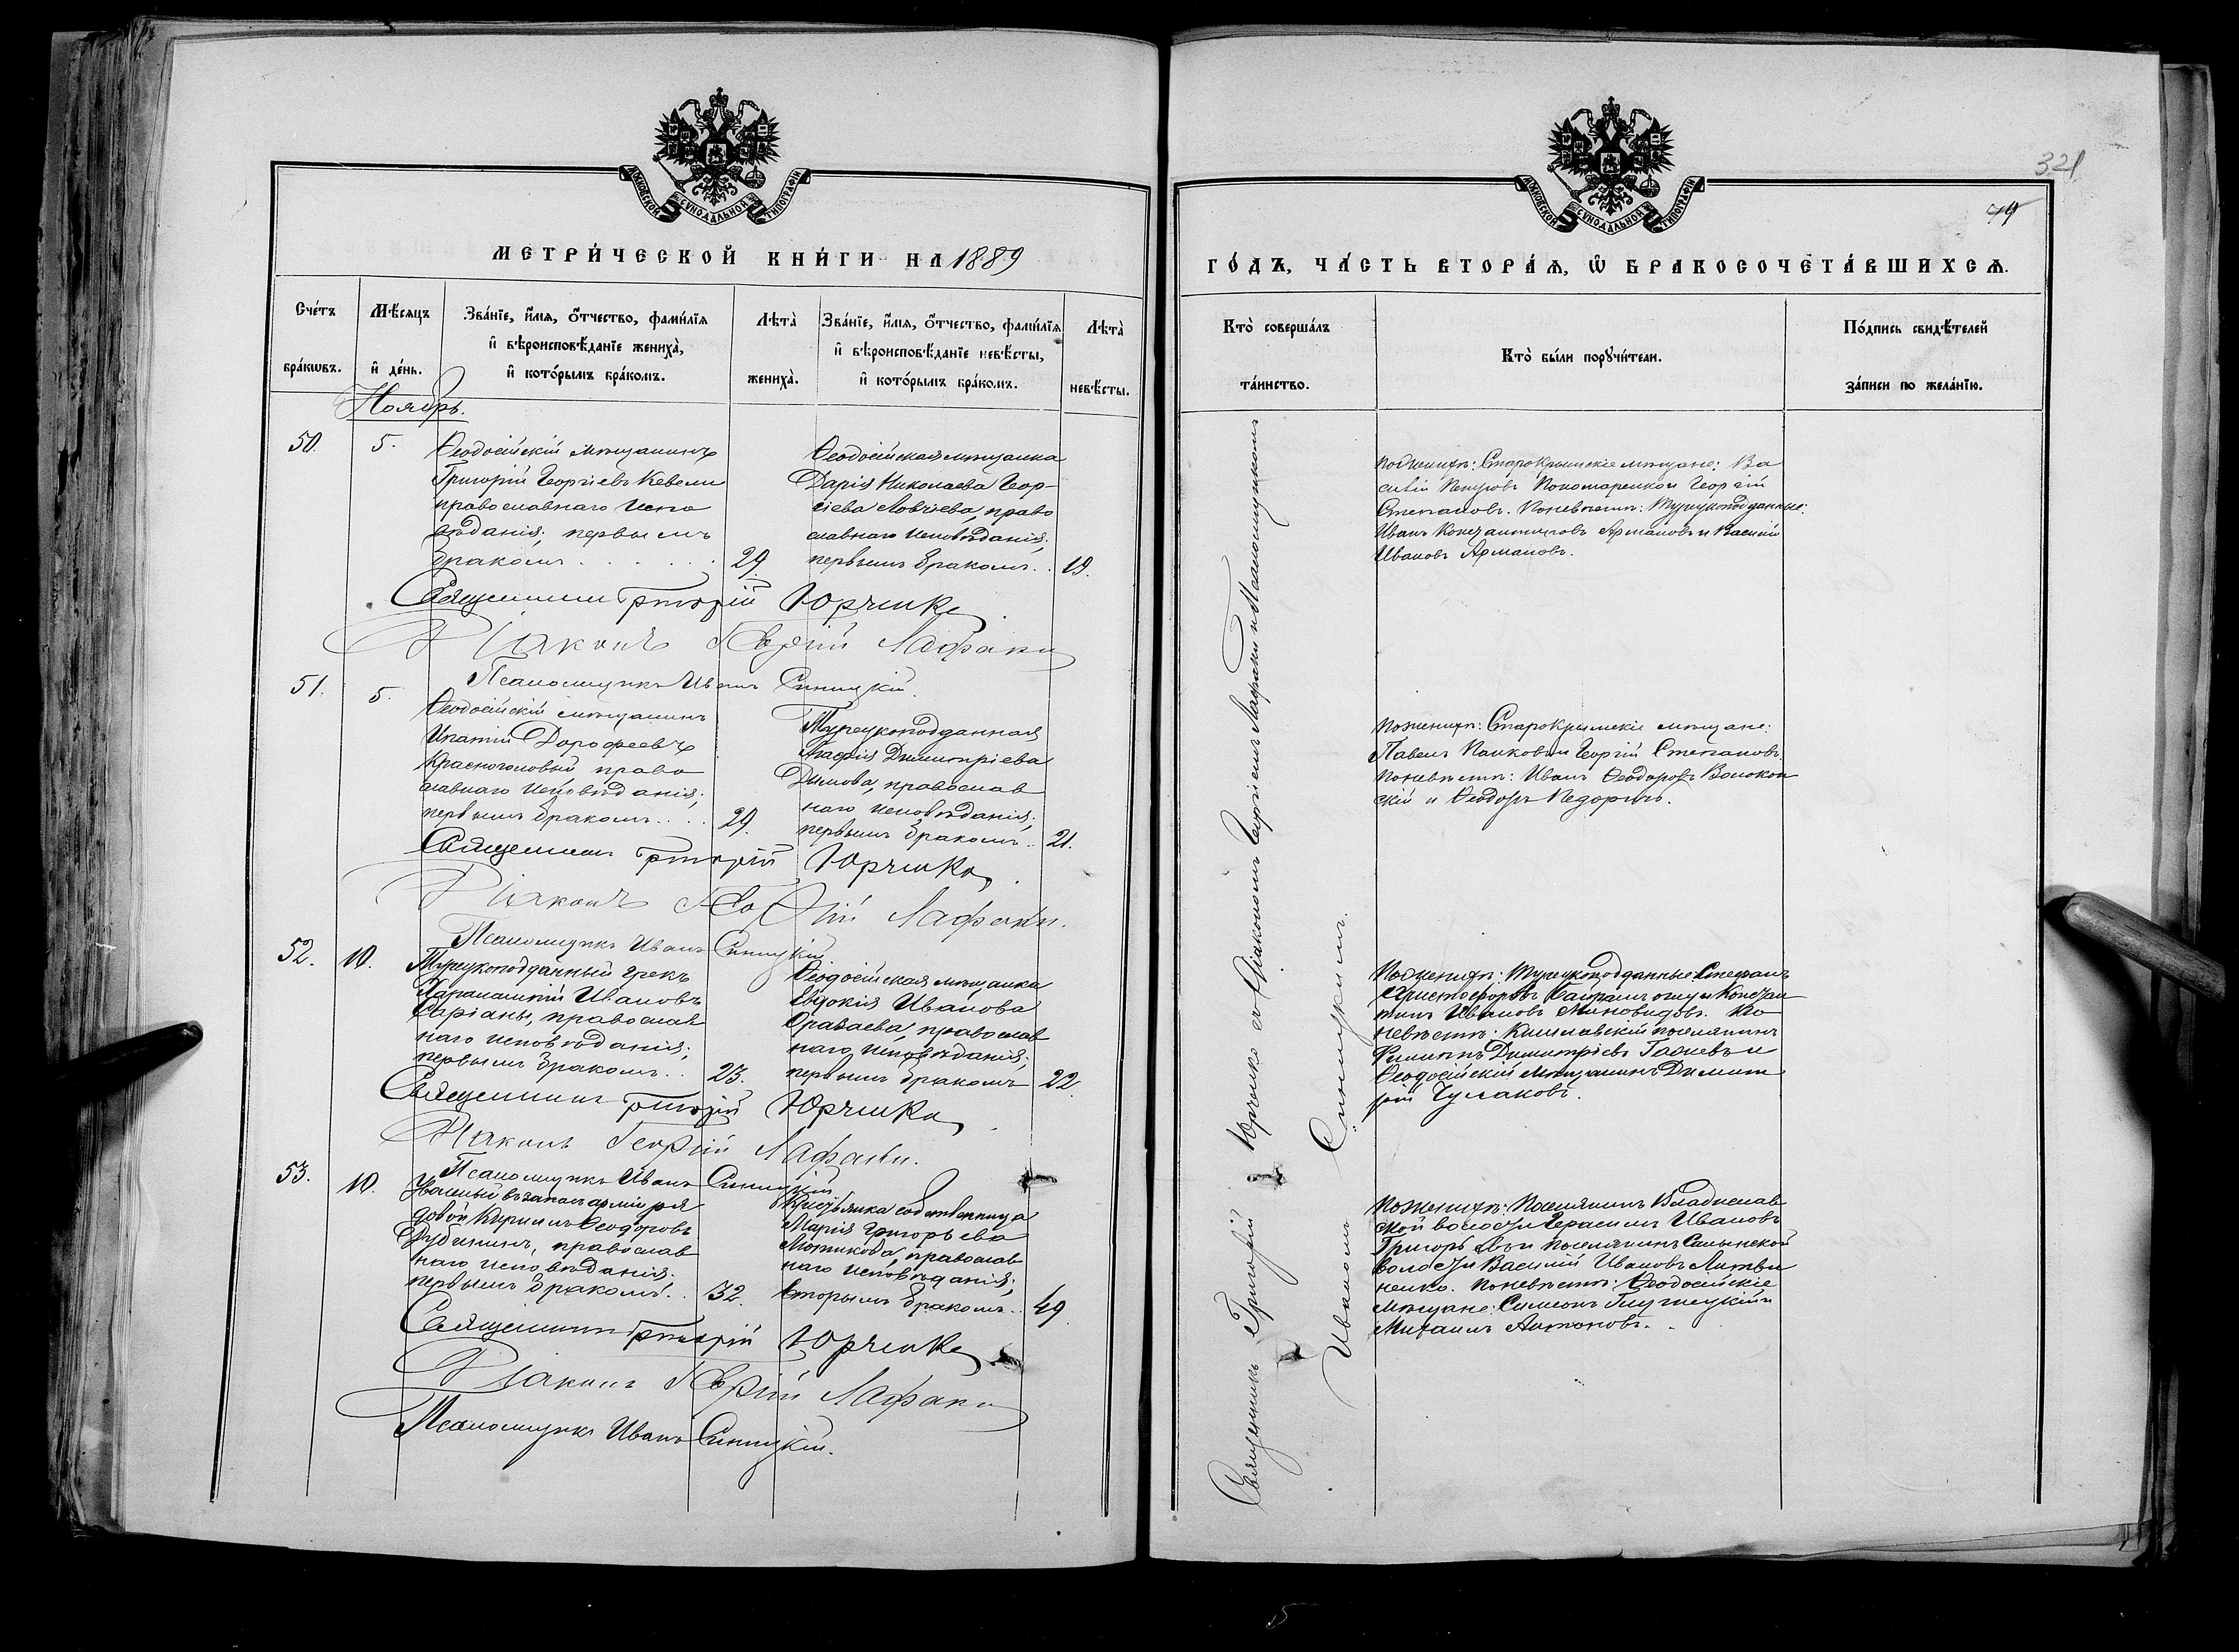 МОСКОВСКОЙ СѴНОДАЛЬНОЙ ТИПОГРАФІИ
МЕТРИ́ЧЕСКОЙ КНИ́ГИ НА 1889
Сче́тъ бра́кѡвъ.
Мѣ́сяцъ и҆ де́нь.
Зва́нїе, и҆́мѧ, ѻ҆́тчество, фами́лїѧ
и҆ вѣроисповѣ́данїе жениха̀,
и҆ кото́рымъ бра́комъ.
Лѣта̀ жениха̀.
Зва́нїе, и҆́мѧ, ѻ҆́тчество, фами́лїѧ
и҆ вѣроисповѣ́данїе невѣ́сты,
и҆ кото́рымъ бра́комъ.
Лѣта̀ невѣ́сты.
Ноябрь.
50.
5.
Ѳеодосійскій мѣщанинъ
Григорій Георгіевъ Кевели
православнаго испо
вѣданія; первымъ
бракомъ . . . . . .
29
Ѳеодосійская мѣщанка
Дарія Николаева Геор-
гіева Ловчіева, право
славнаго исповѣданія;
первымъ бракомъ . .
19.
Священникъ Григорій Юрченко
Діаконъ Георгій Лафаки
Псаломщикъ Иванъ Синицкій.
51.
5.
Ѳеодосійскій мѣщанинъ
Ипатій Дорофеевъ
Красноголовый право
славнаго исповѣданія;
первымъ бракомъ . . .
29.
Турецкоподданная
Димитріева
Дымова, православ
наго исповѣданія;
первымъ бракомъ . .
21.
Священникъ Григорій Юрченко
Діаконъ Георгій Лафаки.
Псаломщикъ Иванъ Синицкій
52.
10.
Турецкоподданный грекъ
Харалампій Ивановъ
Саріаны, православ
наго исповѣданія;
первымъ бракомъ . .
23.
Ѳеодосійская мѣщанка
Евдокія Иванова
православ
наго исповѣданія;
первымъ бракомъ
22.
Священникъ Григорій Юрченко
Діаконъ Георгій Лафаки.
Псаломщикъ Иванъ Синицкій.
53.
10.
въ запасъ арміи ря
довой Кириллъ Ѳеодоровъ
Дубининъ, православ
наго исповѣданія;
первымъ бракомъ. .
32.
Крестьянка собственница
Марія Григорьева
Мютикова, православ
наго исповѣданія;
вторымъ бракомъ. .
49.
Священникъ Григорій Юрченко
Діаконъ Георгій Лафаки
Псаломщикъ Иванъ Синицкій.
321
79
МОСКОВСКОЙ СѴНОДАЛЬНОЙ ТИПОГРАФІИ
ГО́ДЪ, ЧА́СТЬ ВТОРА́Ѧ, Ѡ҆ БРАКОСОЧЕТА́ВШИХСѦ.
Кто̀ соверша́лъ та́инство.
Кто̀ бы́ли порꙋчи́тели.
По́дпись свидѣ́телей
за́писи по жела́нїю.
Священникъ Григорій Юрченко съ Діакономъ Георгіемъ Лафаки и Псаломщикомъ
Иваномъ Синицкимъ.
По женихѣ: Старокрымскіе мѣщане: Ва
силій Петровъ Пономаренко и Георгій
Степановъ. По невѣстѣ: Турецкоподданные:
Иванъ Константиновъ Армановъ и Василій
Ивановъ Армановъ.
По женихѣ: Старокрымскіе мѣщане:
Павелъ Панковъ и Георгій Степановъ.
По невѣстѣ: Иванъ Ѳеодоровъ Волокон
скій и Ѳеодоръ
По женихѣ: Турецкоподданные: Стефанъ
Христофоровъ и Констан
тинъ Ивановъ По
невѣстѣ: Кишлавскій поселянинъ
Димитріевъ и
Ѳеодосійскій мѣщанинъ Димит
рій Чулаковъ.
По женихѣ: Поселянинъ Владислав
ской волости Герасимъ Ивановъ
Григорьевъ и поселянинъ Салынской
волости Василій Ивановъ Литви
ненко. По невѣстѣ: Ѳеодосійскіе
мѣщане: Симеонъ и
Михаилъ Антоновъ.